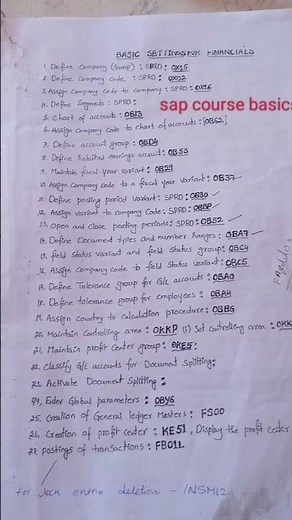 BASIC SETTINGS FOR FINANCIALS
1. Define Company (Group) : SPRO : OX15
2. Define Company code : SPRO : OX02
3. Assign Company Code to Company : SPRO : OX16
4. Define Segments : SPRO :
sap course basics
5. Chart of accounts : OB13
6. Assign Company Code to chart of accounts : [OB62]
7. Define account group : OBD4
8. Define Retained earnings account : OB53
9. Maintain fiscal year variant : OB29
10. Assign Company Code to a fiscal year variant : OB37
11. Define posting period variant : SPRO : OBBO
12. Assign variant to Company Code : SPRO : OBBP
13. Open and close posting periods : SPRO : OB52
14. Define Document types and number Ranges : OBA7
15. field Status variant and field Status group : OBC4
16. Assign Company code to field Status variant : OBC5
17. Define Tolerance group for G/L accounts : OBA0
18. Define tolerance group for employees : OBA4
19. Assign country to calculation procedure : OBBG
20. Maintain Controlling area : OKKP (i) Set controlling area : OKK
21. Maintain profit center group : OKE5 :
22. Classify G/L accounts for Document Splitting :
23. Activate Document Splitting :
24. Enter Global parameters : OBY6
25. Creation of General ledger Masters : FS00
26. Creation of profit center : KE51, Display the profit center
27. postings of transactions : FB01L
for Jack online deletion - /NSM12